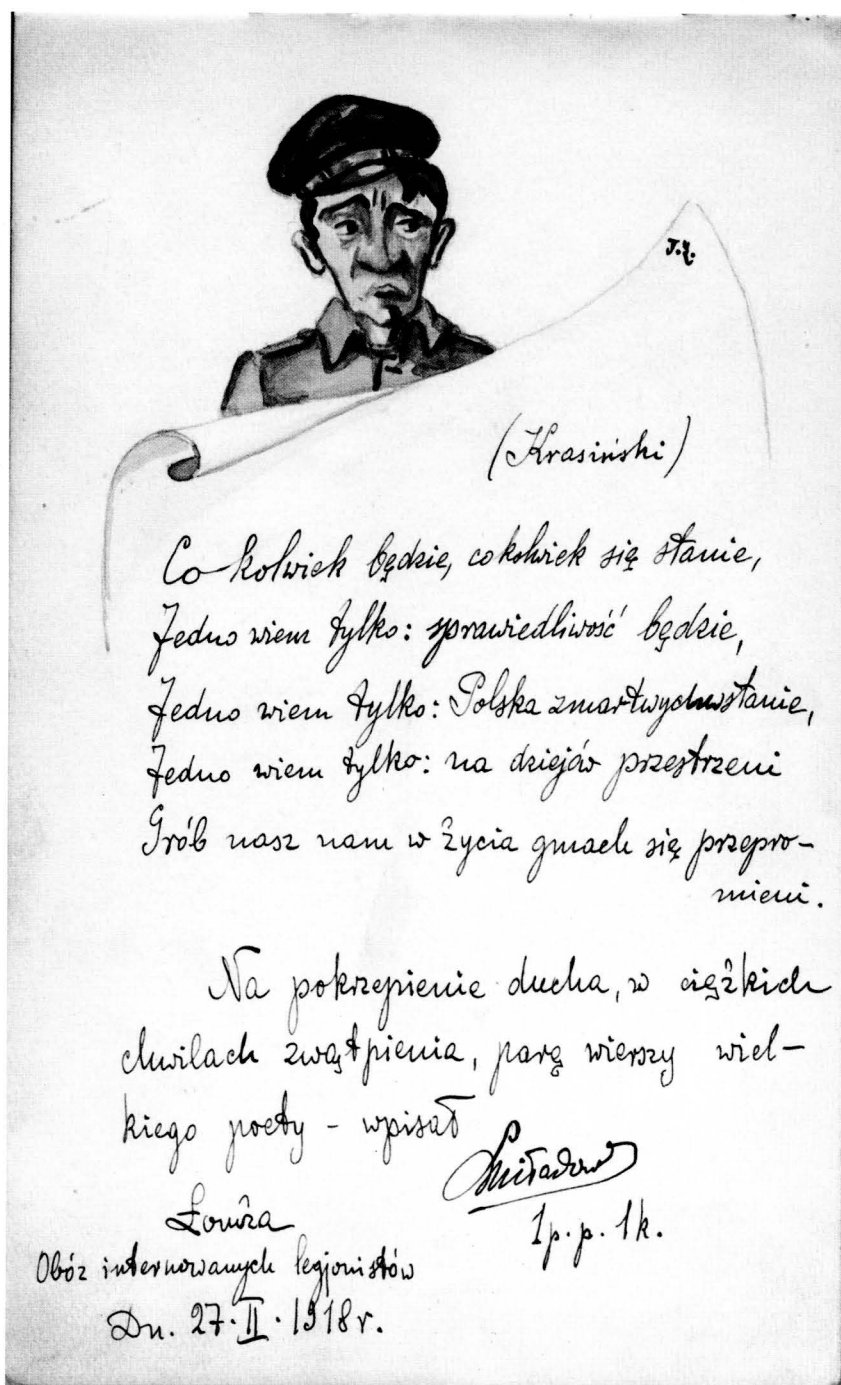 J.Ł.
(Krasiński)
Co-kolwiek będzie, cokolwiek się stanie,
Jedno wiem tylko: sprawiedliwość będzie,
Jedno wiem tylko: Polska zmartwychwstanie,
Jedno wiem tylko: na dziejów przestrzeni
Grób nasz nam w życia gmach się przepro-
mieni.
Na pokrzepienie ducha, w ciężkich
chwilach zwątpienia, parę wierszy wiel-
kiego poety - wpisał
1p. p. 1k.
Łomża
Obóz internowanych legjonistów
Dn. 27. II. 1918 r.